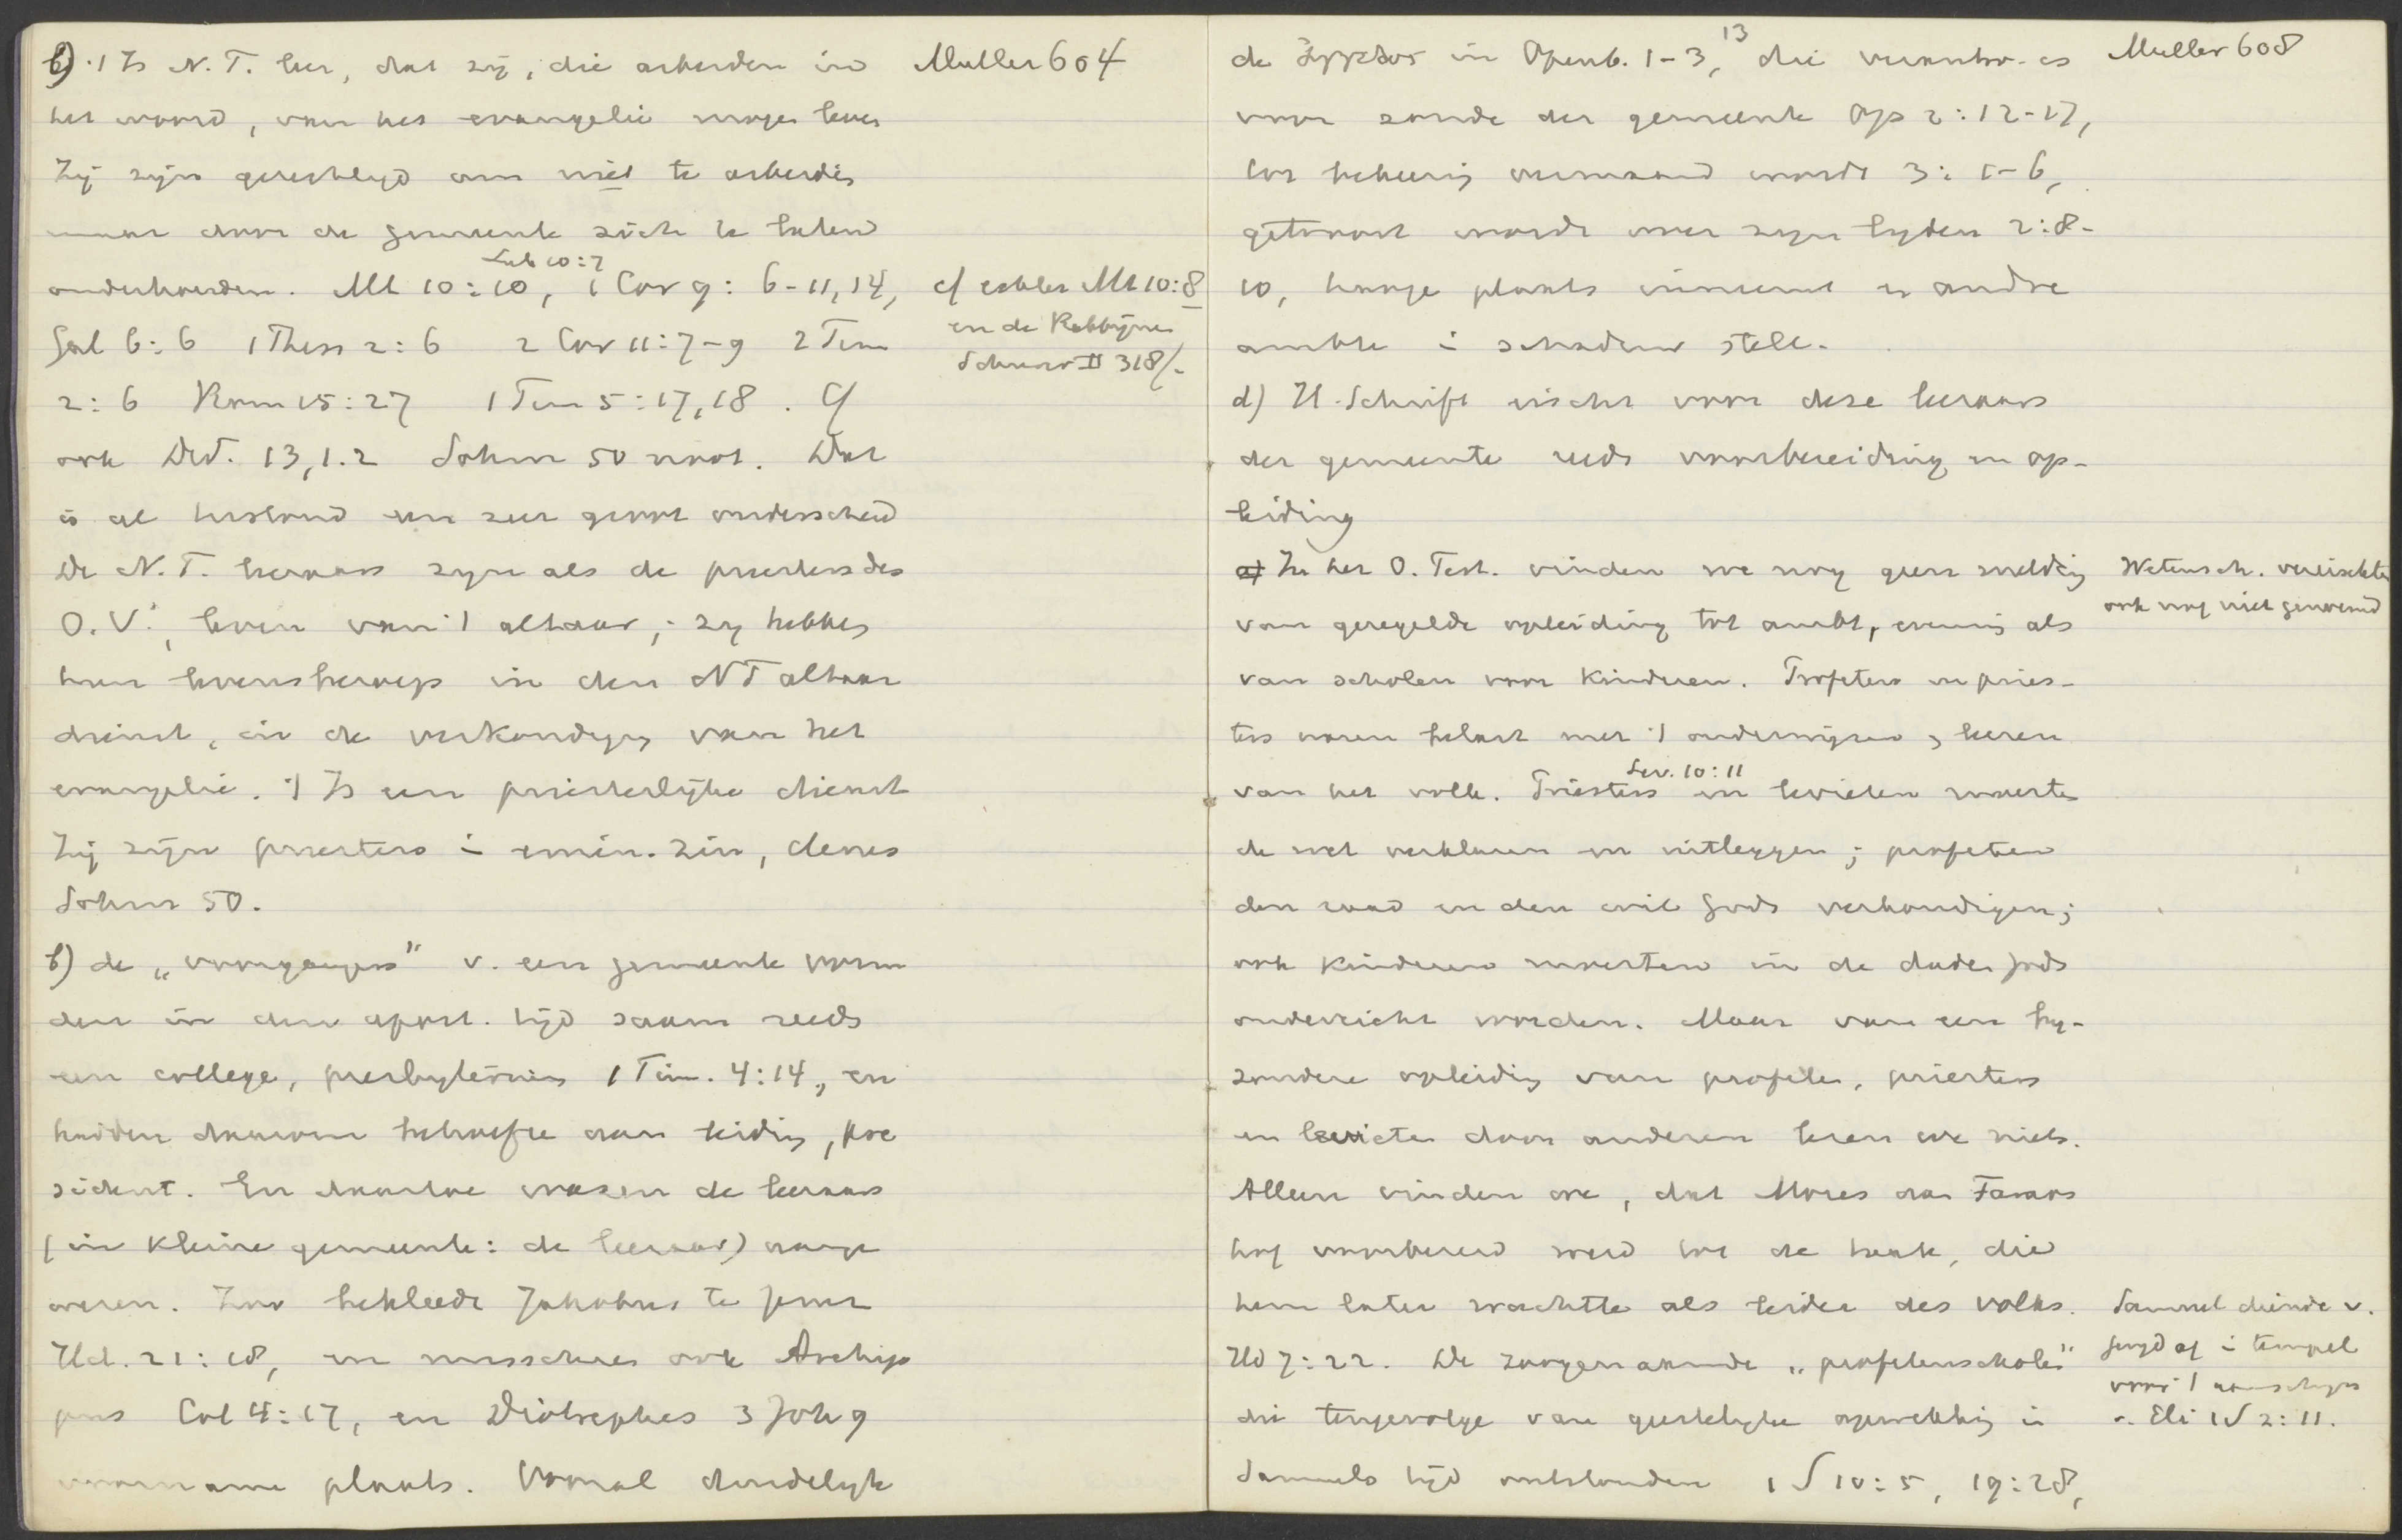 b) 't Is N. T. leer, dat zij, die arbeiden in
het woord, van het evangelie mogen leven
Zij zijn gerechtigd om niet te arbeiden
maar door de gemeente zich te laten
Luk 10:7
onderhouden. Mt 10:10, 1 Cor 9: 6-11, 14,
Gal 6:6 1 Thess 2:6 2 Cor 11:7-9 2 Tim
2:6 Rom 15:27 1 Tim 5:17,18. Cf
ook Did. 13,1.2 Sohm 50 noot. Dat
is al bestond een zeer groot onderscheid
De N. T. leeraars zijn als de priesters des
O. V., leven van 't altaar; zij hebben
hun levensberoep in den NT altaar
dienst, in de verkondiging van het
evangelie. 't Is een priesterlijke dienst
Zij zijn priesters i emin. zin, denes
Sohm 50.
Muller 604
cf echter Mt 10:8
en de Rabbijnen
Schurer II 318/-
b) de „voorgangers" v. een gemeente vorm
den in den apost. tijd saam reeds
een college, presbyterium 1 Tim. 4:14, en
hadden daarom behoefte aan leiding, pre
sident. En daartoe waren de leeraars
(in kleine gemeente: de leeraar) aange
wezen. Zoo bekleedde Jakobus te Jeruz
Hd. 21:18, en misschien ook Archip
pus Col 4:17, en Diotrephes 3 Joh 9
voorname plaats. Vooral duidelijk
de ἄγγελος in Openb. 1-3, 13 die verantw. is
voor zonde der gemeente Op 2:12-17,
tot bekeering vermaand wordt 3:1-6,
getroost wordt over zijn lijden 2:8-
10, hooge plaats inneemt en andre
ambte i schaduw stelt.
Muller 608
d) H. Schrift eischt voor deze leeraars
der gemeente reeds voorbereiding en op-
leiding
a) In het O. Test. vinden we nog geen melding
van geregelde opleiding tot ambt, evenmin als
van scholen voor kinderen. Profeten en pries-
ters waren belast met 't onderwijzen, leeren
Lev. 10:11
van het volk. Priesters en levieten moesten
de wet verklaren en uitleggen; profeten
den raad en den wil Gods verkondigen;
ook kinderen moesten in de daden Gods
onderricht worden. Maar van een bij-
zondere opleiding van profeten, priesters
en levieten door anderen lezen we niets.
Alleen vinden we, dat Mozes aan Faraos
hof voorbereid werd tot de taak, die
hem later wachtte als leider des volks.
Hd 7:22. De zoogenaamde „profetenscholen"
die tengevolge van geestelijke opwekking in
Samuels tijd ontstonden 1 S 10:5, 19:28,
Wetensch. vereischten
ook nog niet genoemd
Samuel diende v.
jeugd af i tempel
voor 't aanschijn
v. Eli 1 S 2:11.